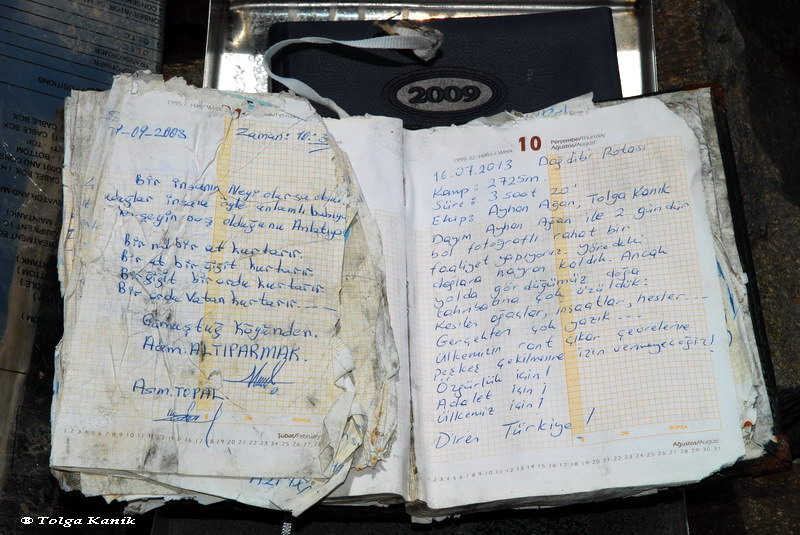 2009
1999/2. Hafta/Week
?-09-2003 Zaman: 10:3
Bir insanın Neyi olursa olsun,
dağlar insana öyle anlamlı bakıyor
her şeyin boş olduğunu Anlatıyor
Bir nal bir at kurtarır.
Bir at bir yiğit kurtarır.
Bir yiğit bir ordu kurtarır
Bir ordu Vatan kurtarır.....
Gümüştuğ Köyünden.
Adem. ALTIPARMAK.
Asım. TOPAL
Şubat/February
10 Perşembe/Thursday
Ağustos/August
16.07.2013 Dağdibi Rotası
Kamp: 2725m.
Süre: 3 saat 20'
Ekip: Ayhan Ağan, Tolga Kanık
Dayım Ayhan Ağan ile 2 gündür
bol fotoğraflı rahat bir
faaliyet yapıyoruz. yöredeki
dağlara hayran kaldık. Ancak
yolda gördüğümüz doğa
tahribatına çok üzüldük:
Kesilen ağaçlar, inşaatlar, hesler....
Gerçekten çok yazık...
Ülkemizin rant çıkar çevrelerine
peşkeş çekilmesine izin vermeyeceğiz!
Özgürlük için!
Adalet için!
Ülkemiz için!
Diren Türkiye!
Ağustos/August
® Tolga Kanik